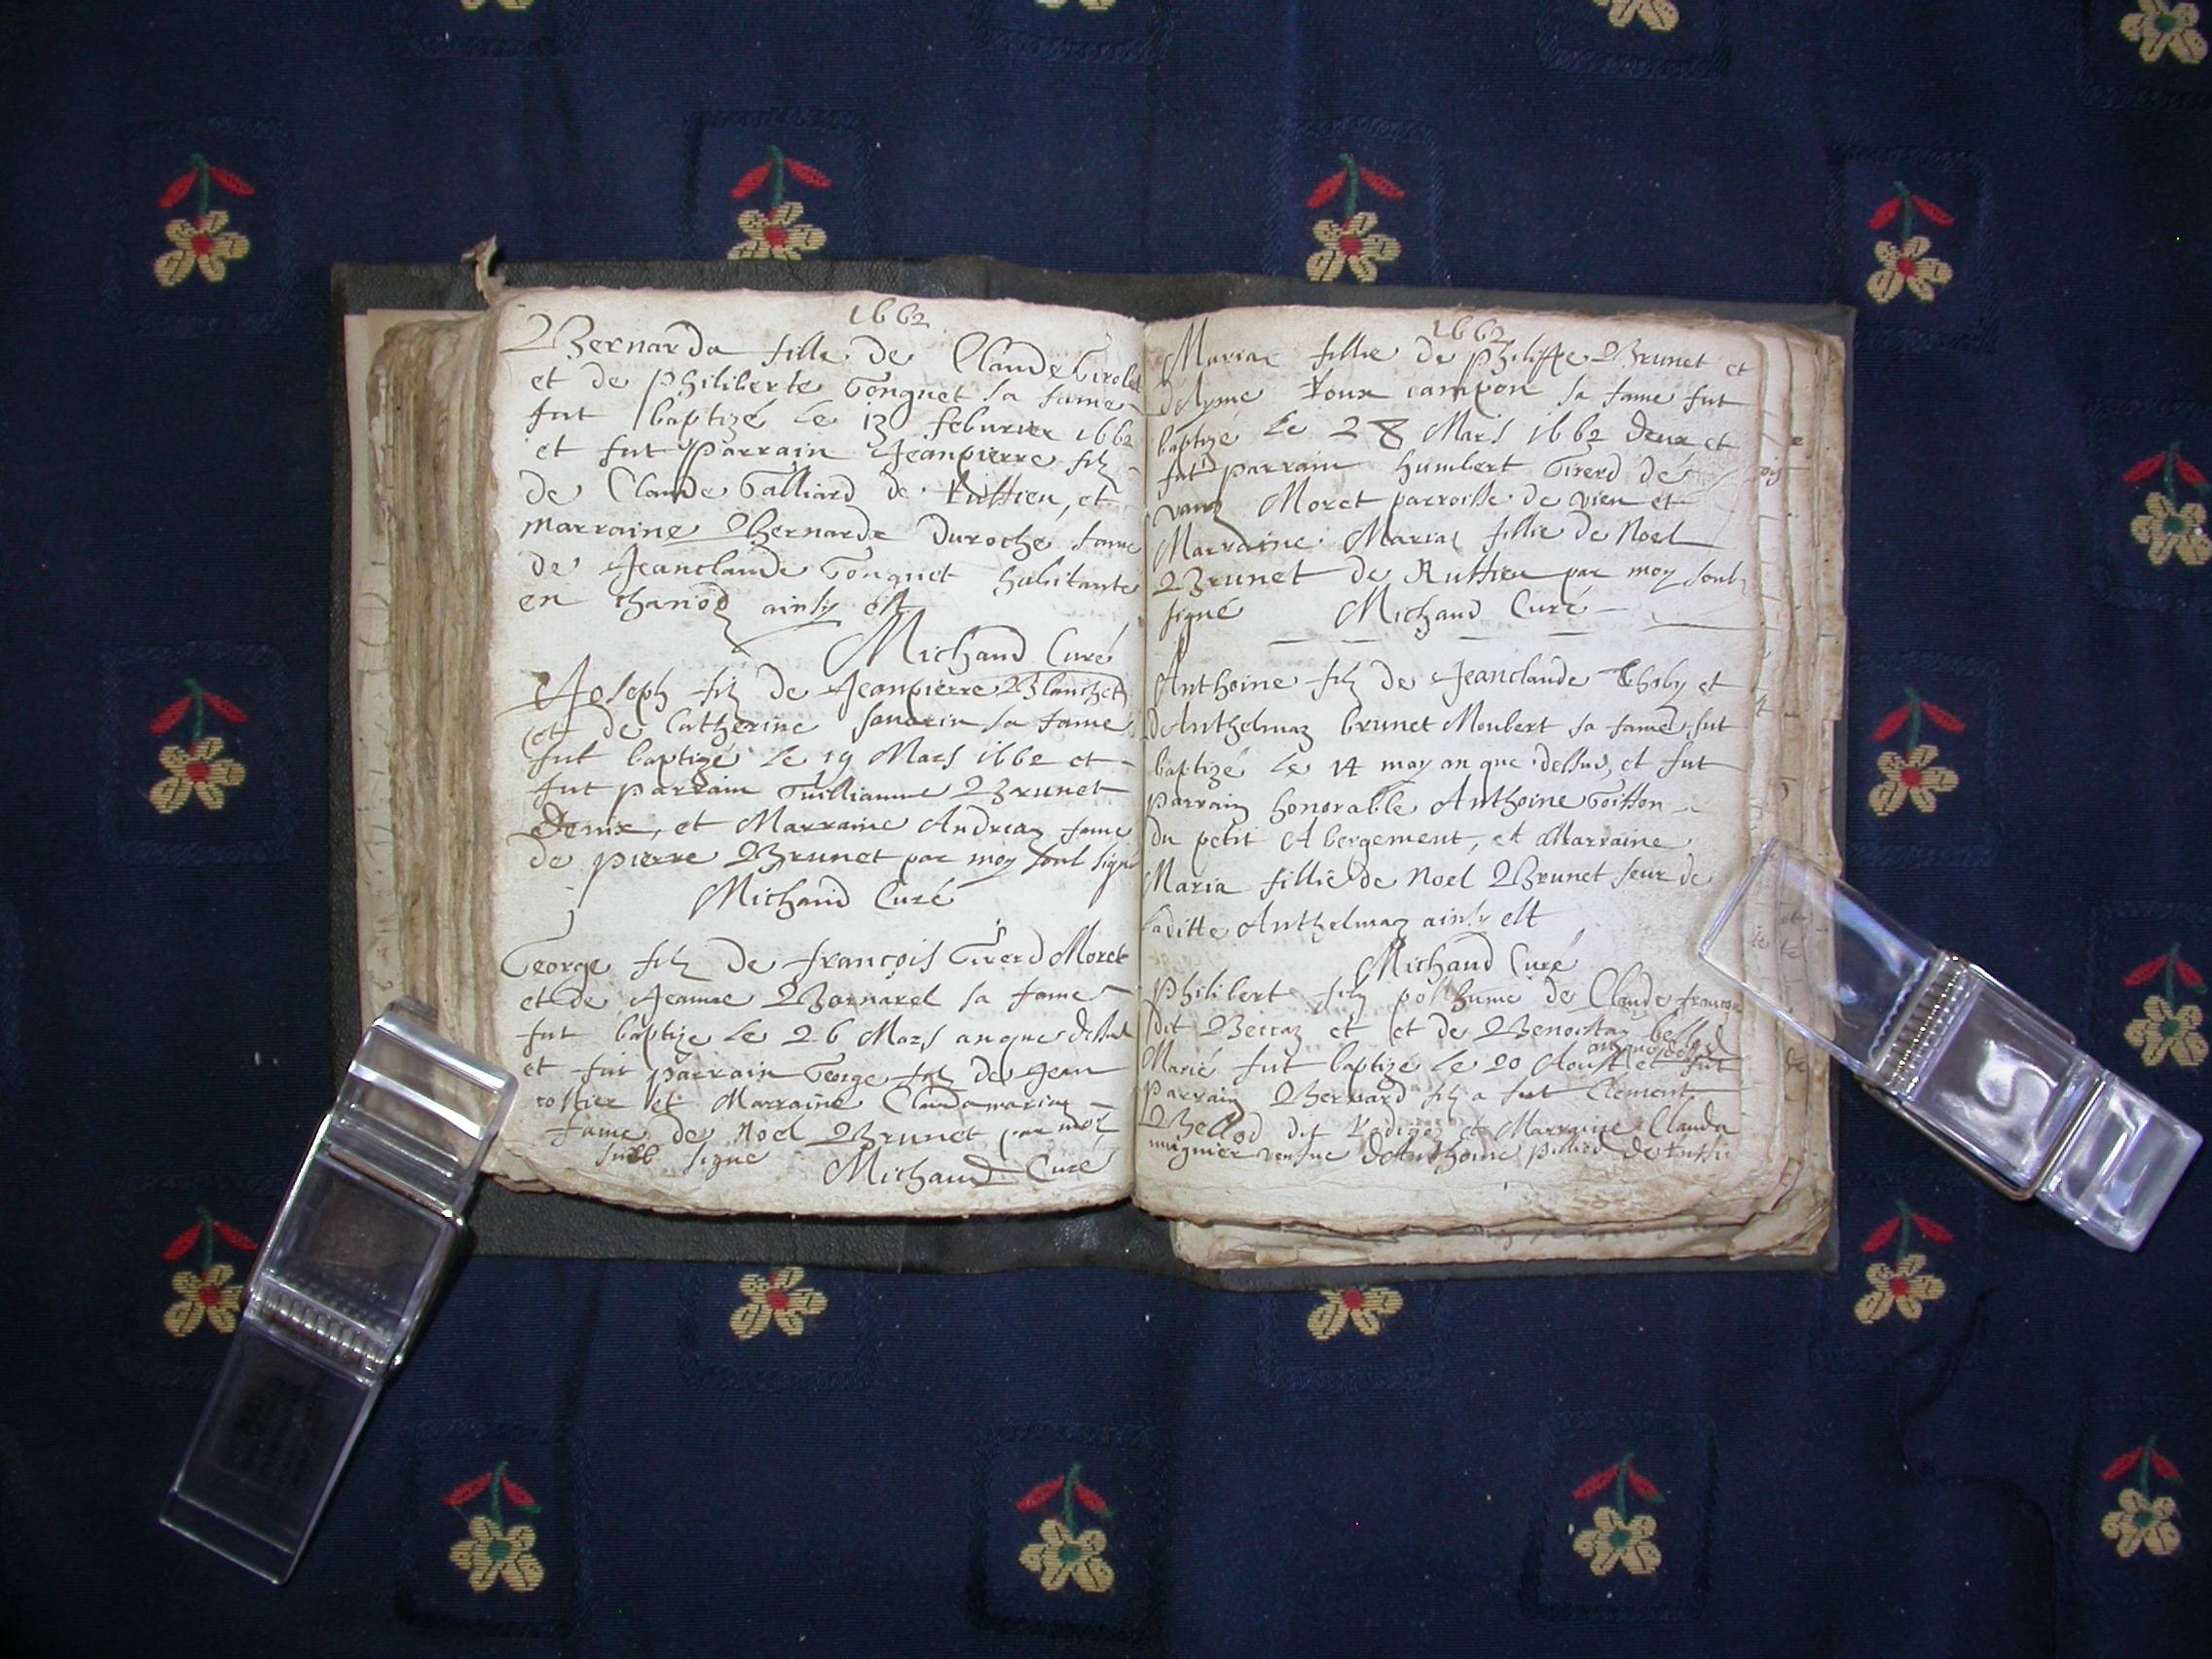 1662
Bernarda fille de Claude Girolet
et de philiberte Gonguet sa fame
fut baptizé le 13 feburier 1662
et fut parrain Jeanpierre filz
de Claude Galliard de Ruffieu, et
marraine Bernarde Duroche, fame
de Jeanclaude Gonguet habitante
en ainsy est
Michaud Curé
Joseph filz de Jeanpierre Blanchet
et de Catherine sa fame
fut baptizé le 19 Mars 1662 et
fut parrain Guilliaume Brunet
et Marraine Andreaz fame
de pierre Brunet par moy soub signé
Michaud Curé
George filz de françois Girerd Moret
et de Jeanne Bornarel sa fame
fut baptize le 26 Mars an que dessus
et fut parrain George filz de Jean
et Marraine Claudamariaz
fame de Noel Brunet par moy
signe
Michaud Curé
1662
Mariaz fillie de philippe Brunet et
dAyme Roux campon sa fame fut
baptizé le 28 Mars 1662 deux et
fut parrain humbert Girerd de
Moret parroisse de vieu et
Marraine Mariaz fillie de Noel
Brunet de Ruffieu par moy soub
signé Michaud Curé
Anthoine filz de Jeanclaude Thoby et
dAnthelmaz brunet Monbert sa fame fut
baptizé le 14 may an que dessus, et fut
parrain honorable Anthoine Goiffon
du petit Abergement, et Marraine
Maria fillie de Noel Brunet seur de
laditte Anthelmaz ainsy est
Michaud Curé
Philibert filz posthume de Claude françois
dit et et de Benoistaz
an que dessus
Marié fut baptize le 20 Aoust et fut
parrain Bernard filz a fut Clement
dit et Marraine Clauda
veufue dAnthoine de Ruffie